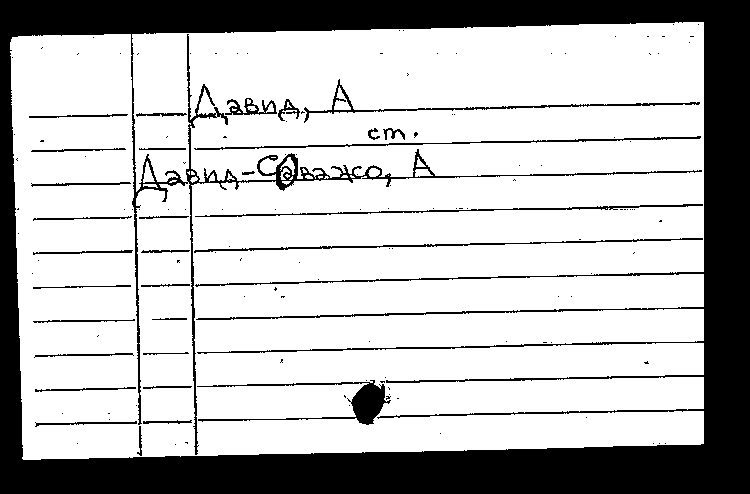 Давид, А
ст.
Давид-Соважо, А